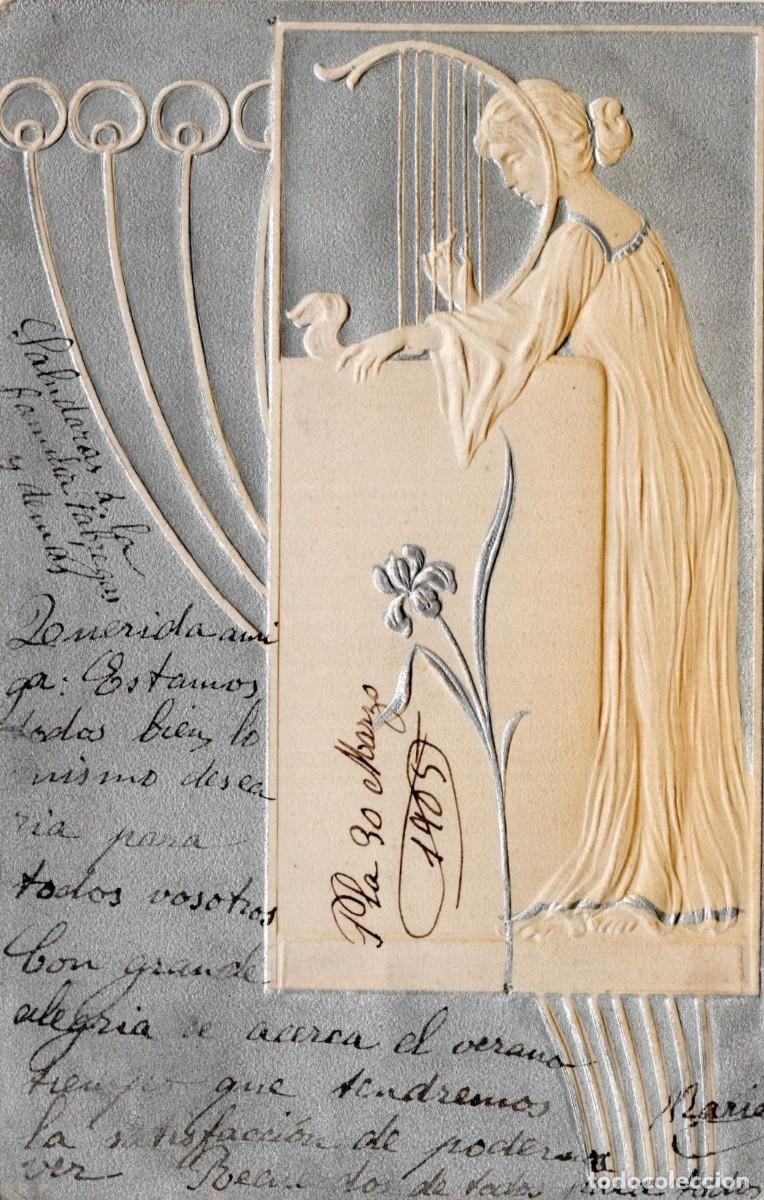 Pla 30 Marzo
1905
Saludaras a la
familia Fabregas
y demas
Querida ami
ga: Estamos
todos bien, lo
mismo desea
ria para
todos vosotros
Con grande
alegria se acerca el verano
tiempo que tendremos
la satisfacción de poder
ver Recuerdos de todos
Maria
todocoleccion